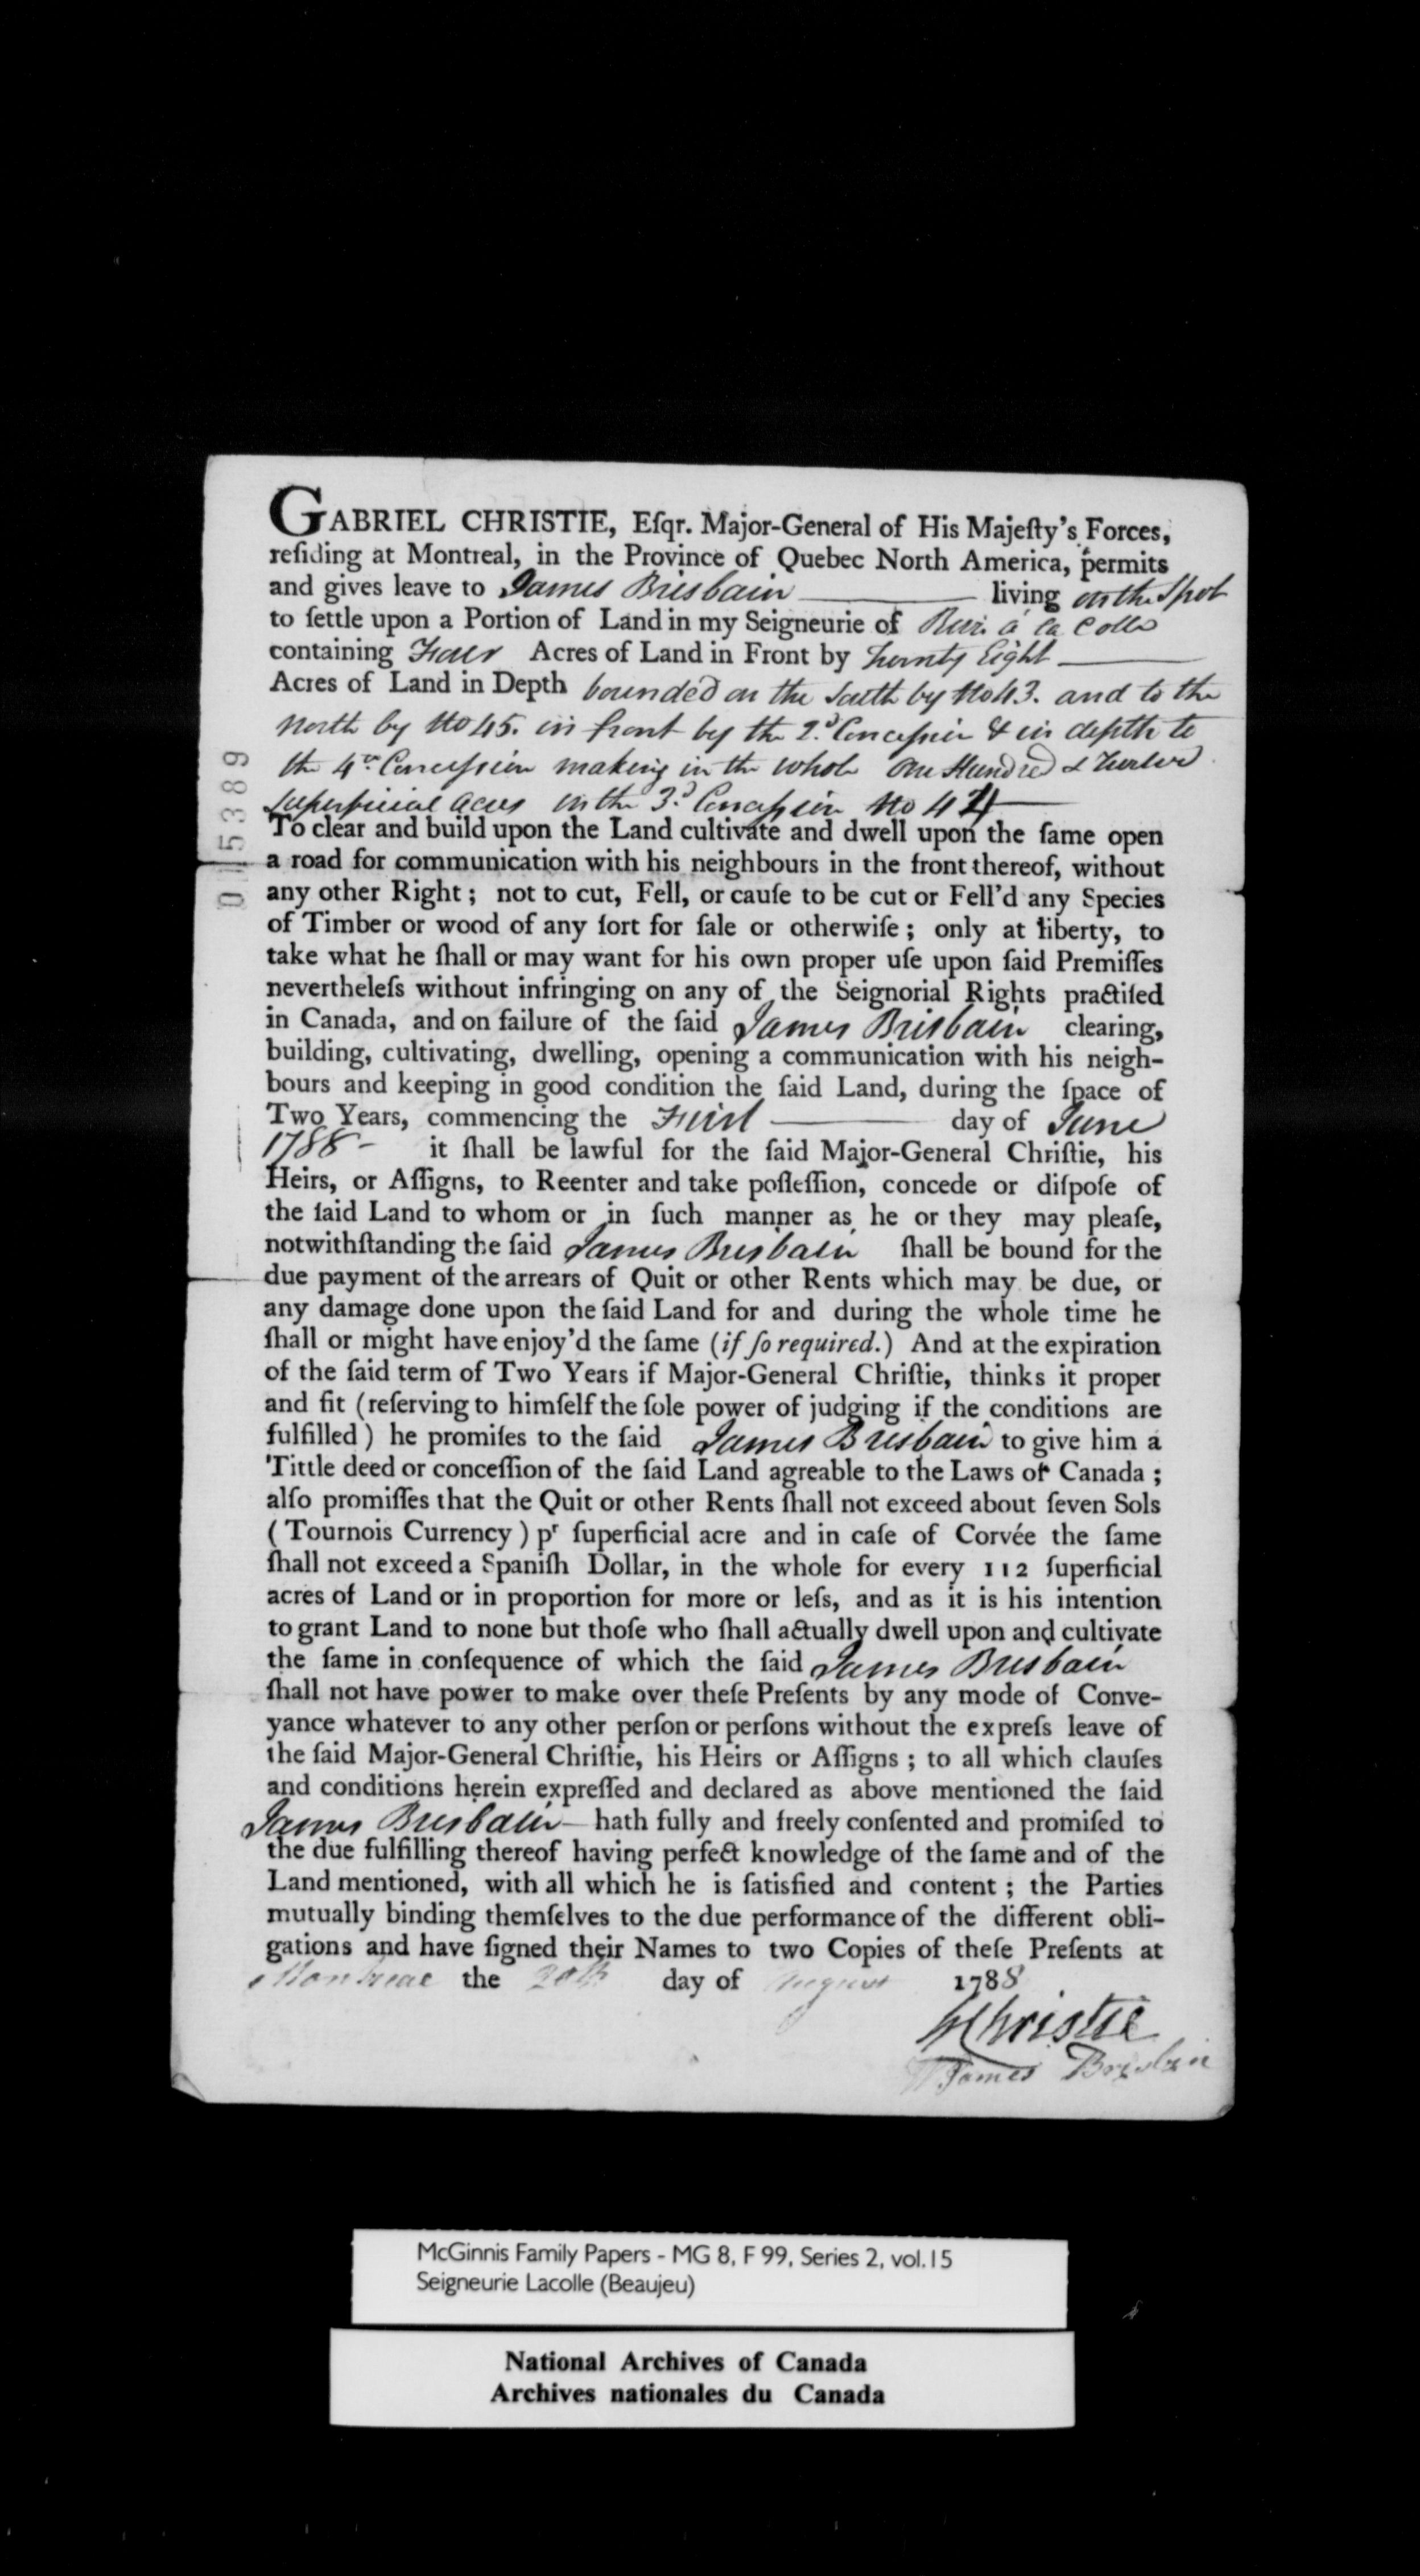 GABRIEL CHRISTIE, Eſqr. Major-General of His Majeſty's Forces,
reſiding at Montreal, in the Province of Quebec North America, permits
and gives leave to James Brisbain living on the Spot
to ſettle upon a Portion of Land in my Seigneurie of à la Colle
containing Four Acres of Land in Front by Twenty Eight
Acres of Land in Depth bounded on the South by No 43. and to the
North by No 45. in front by the 2.d Conceſsion & in depth to
the 4.th Conceſsion making in the whole One Hundred & Twelve
Superficial Acres in the 3.d Conceſsion No 44
To clear and build upon the Land cultivate and dwell upon the ſame open
a road for communication with his neighbours in the front thereof, without
any other Right; not to cut, Fell, or cauſe to be cut or Fell'd any Species
of Timber or wood of any ſort for ſale or otherwiſe; only at liberty, to
take what he ſhall or may want for his own proper uſe upon ſaid Premiſſes
nevertheleſs without infringing on any of the Seignorial Rights practiſed
in Canada, and on failure of the ſaid James Brisbain clearing,
building, cultivating, dwelling, opening a communication with his neigh-
bours and keeping in good condition the ſaid Land, during the ſpace of
Two Years, commencing the First day of June
1788 - it ſhall be lawful for the ſaid Major-General Chriſtie, his
Heirs, or Aſſigns, to Reenter and take poſſeſſion, concede or diſpoſe of
the ſaid Land to whom or in ſuch manner as he or they may pleaſe,
notwithſtanding the ſaid James Brisbain ſhall be bound for the
due payment of the arrears of Quit or other Rents which may be due, or
any damage done upon the ſaid Land for and during the whole time he
ſhall or might have enjoy'd the ſame (if ſo required.) And at the expiration
of the ſaid term of Two Years if Major-General Chriſtie, thinks it proper
and fit (reſerving to himſelf the ſole power of judging if the conditions are
fulfilled) he promiſes to the ſaid James Brisbain to give him a
Tittle deed or conceſſion of the ſaid Land agreable to the Laws of Canada;
alſo promiſſes that the Quit or other Rents ſhall not exceed about ſeven Sols
(Tournois Currency) pr ſuperficial acre and in caſe of Corvée the ſame
ſhall not exceed a Spaniſh Dollar, in the whole for every 112 ſuperficial
acres of Land or in proportion for more or leſs, and as it is his intention
to grant Land to none but thoſe who ſhall actually dwell upon and cultivate
the ſame in conſequence of which the ſaid James Brisbain
ſhall not have power to make over theſe Preſents by any mode of Conve-
yance whatever to any other perſon or perſons without the expreſs leave of
the ſaid Major-General Chriſtie, his Heirs or Aſſigns; to all which clauſes
and conditions herein expreſſed and declared as above mentioned the ſaid
James Brisbain hath fully and freely conſented and promiſed to
the due fulfilling thereof having perfect knowledge of the ſame and of the
Land mentioned, with all which he is ſatisfied and content; the Parties
mutually binding themſelves to the due performance of the different obli-
gations and have ſigned their Names to two Copies of theſe Preſents at
Montreal the 20th day of August 1788
GChristie
James Brisbin
015389
McGinnis Family Papers - MG 8, F 99, Series 2, vol.15
Seigneurie Lacolle (Beaujeu)
National Archives of Canada
Archives nationales du Canada